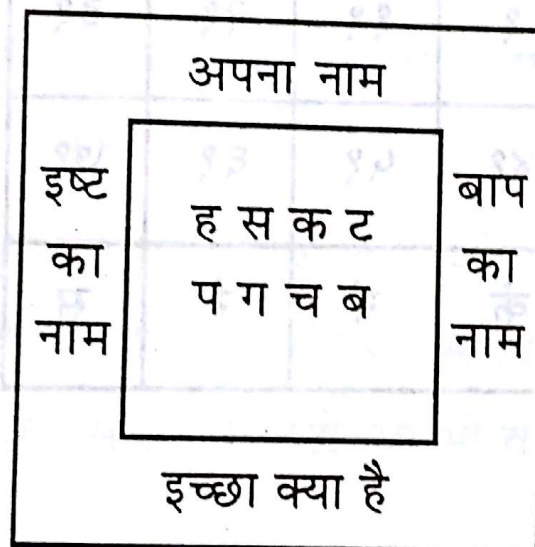 अपना नाम
इष्ट
का
नाम
ह स क ट
प ग च ब
बाप
का
नाम
इच्छा क्या है